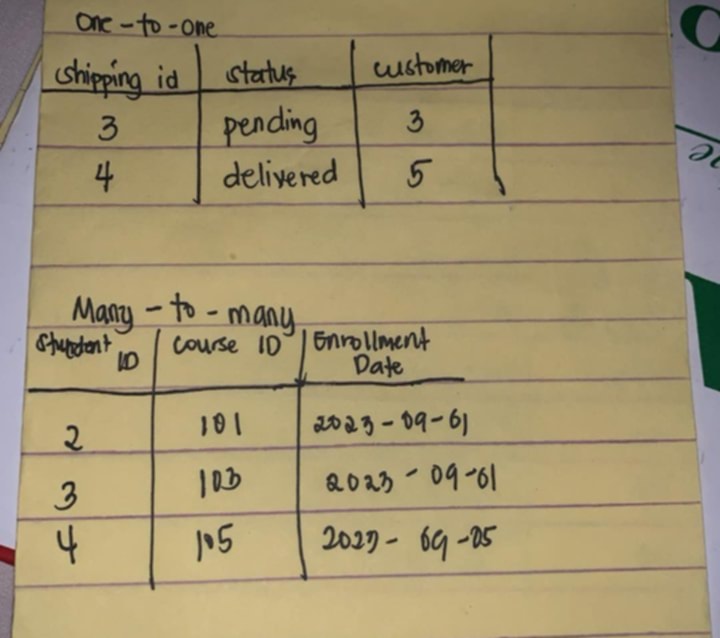 One-to-one
shipping id status customer
3 pending 3
4 delivered 5
Many-to-many
Student ID Course ID Enrollment Date
2 101 2023-09-01
3 103 2023-09-01
4 105 2023-09-05